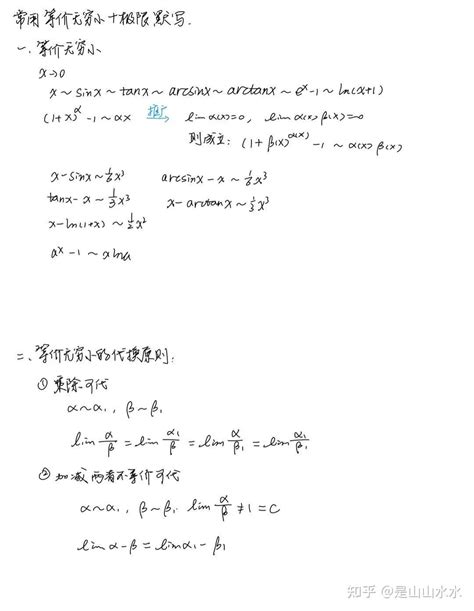 常用等价无穷小+极限默写.
一.等价无穷小
x→0
x ~ sinx ~ tanx ~ arcsinx ~ arctanx ~ eˣ-1 ~ ln(x+1)
(1+x)^α -1 ~ αx 推广 lim α(x)=0, lim α(x)β(x)=0
则成立: (1+β(x))^α(x) -1 ~ α(x)β(x)
x-sinx ~ 1/6 x³ arcsinx-x ~ 1/6 x³
tanx-x ~ 1/3 x³ x-arctanx ~ 1/3 x³
x-ln(1+x) ~ 1/2 x²
aˣ-1 ~ xlna
二、等价无穷小的代换原则:
① 乘除可代
α~α₁, β~β₁
lim α/β = lim α₁/β = lim α/β₁ = lim α₁/β₁
② 加减两者不等价可代
α~α₁, β~β₁. lim α/β ≠1 = C
lim α-β = lim α₁-β₁
知乎 @是山山水水